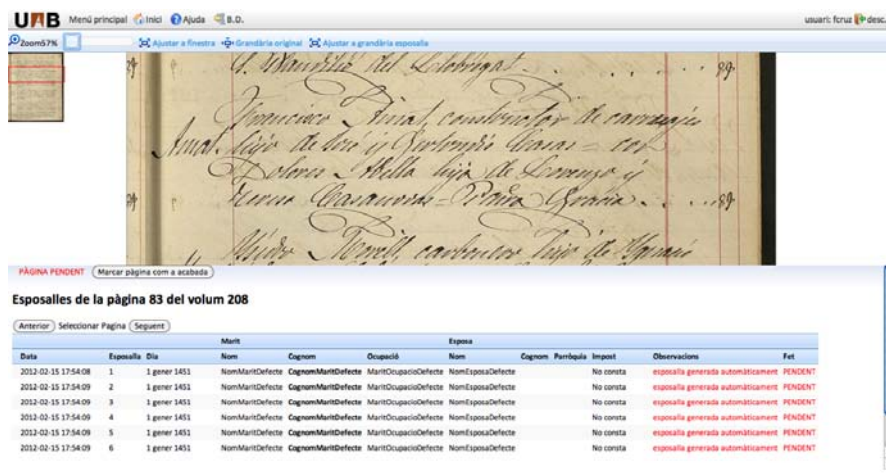 UAB Menú principal Inici Ajuda B.D. usuari: fcruz
Zoom57% Ajustar a finestra Grandària original Ajustar a grandària esposalla
del Llobregat . . . . 89
Francisco Amat, constructor de carruajes
Amat hijo de José y Gertrudis Casas = con
Dolores Abella hija de Lorenzo y
Teresa Casanovas = Gracia . . . . 89
Isidro carbonero hijo de Ygnacio
PÀGINA PENDENT Marcar pàgina com a acabada
Esposalles de la pàgina 83 del volum 208
Anterior Seleccionar Pagina Seguent
Marit Esposa
Data Esposalla Dia Nom Cognom Ocupació Nom Cognom Parròquia Impost Observacions Fet
2012-02-15 17:54:08 1 1 gener 1451 NomMaritDefecte CognomMaritDefecte MaritOcupacioDefecte NomEsposaDefecte No consta esposalla generada automàticament PENDENT
2012-02-15 17:54:09 2 1 gener 1451 NomMaritDefecte CognomMaritDefecte MaritOcupacioDefecte NomEsposaDefecte No consta esposalla generada automàticament PENDENT
2012-02-15 17:54:09 3 1 gener 1451 NomMaritDefecte CognomMaritDefecte MaritOcupacioDefecte NomEsposaDefecte No consta esposalla generada automàticament PENDENT
2012-02-15 17:54:09 4 1 gener 1451 NomMaritDefecte CognomMaritDefecte MaritOcupacioDefecte NomEsposaDefecte No consta esposalla generada automàticament PENDENT
2012-02-15 17:54:09 5 1 gener 1451 NomMaritDefecte CognomMaritDefecte MaritOcupacioDefecte NomEsposaDefecte No consta esposalla generada automàticament PENDENT
2012-02-15 17:54:09 6 1 gener 1451 NomMaritDefecte CognomMaritDefecte MaritOcupacioDefecte NomEsposaDefecte No consta esposalla generada automàticament PENDENT